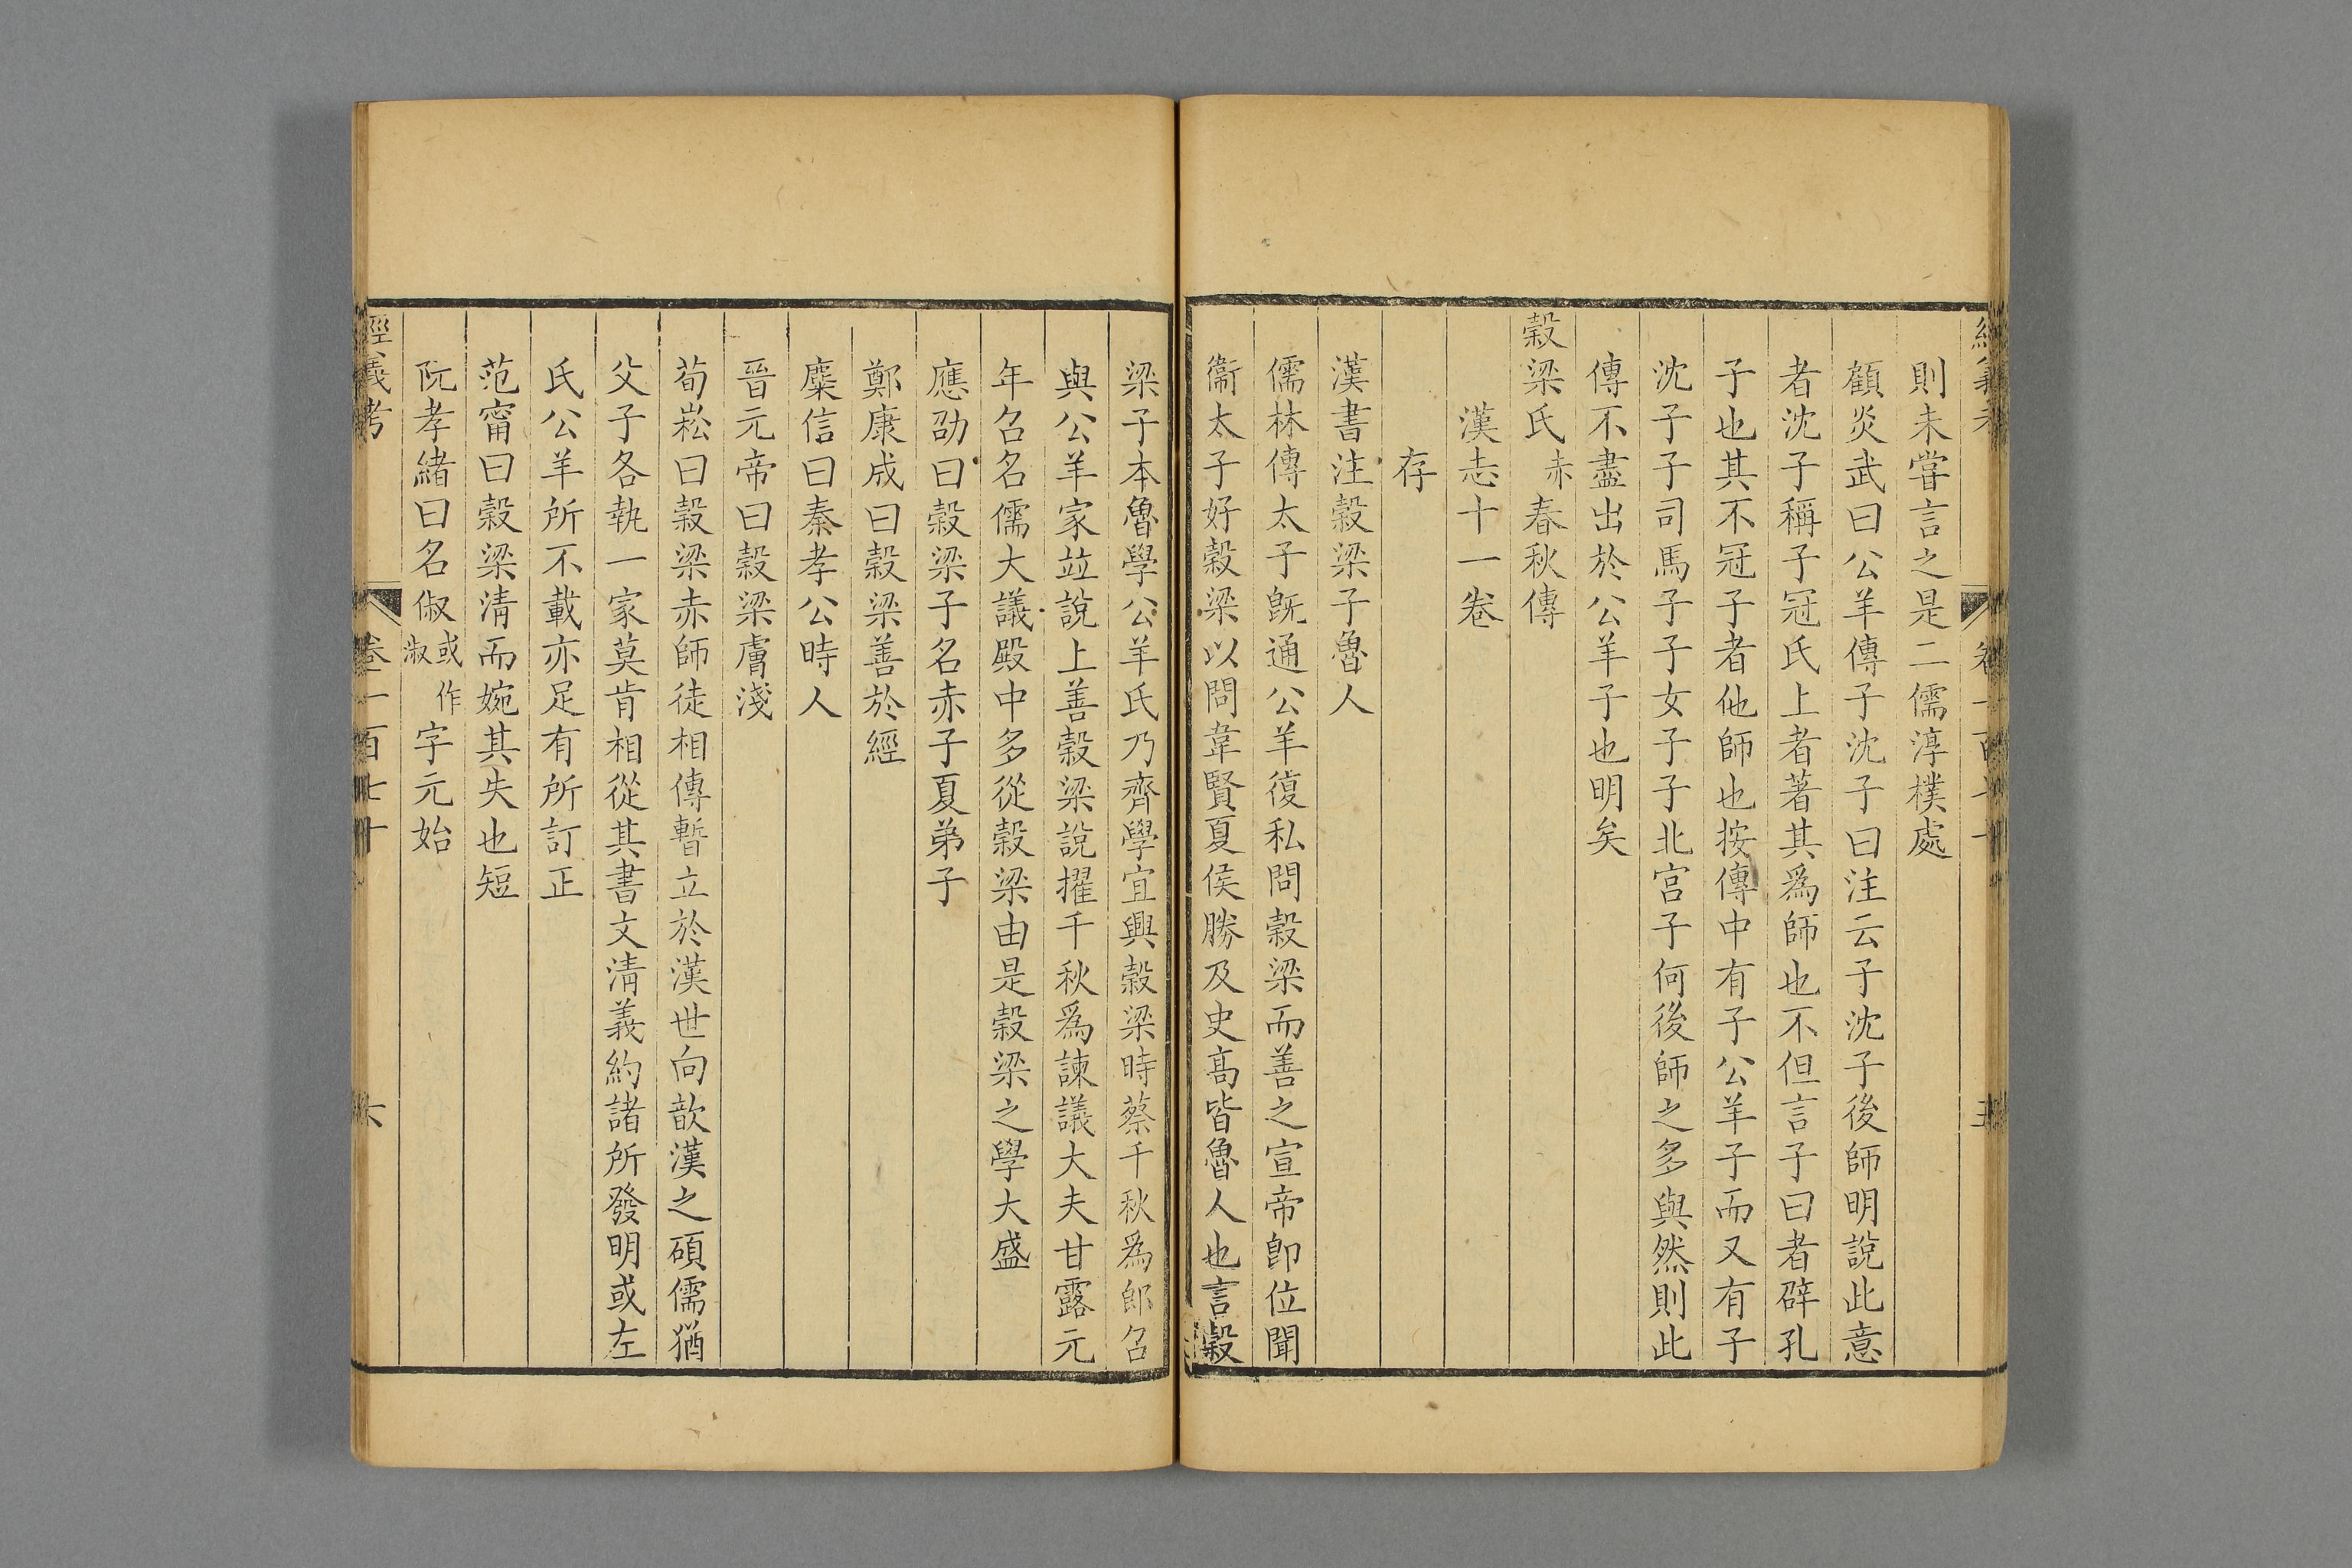 則未嘗言之是二儒淳樸處
顧炎武曰公羊傳子沈子曰注云子沈子後師明說此意
者沈子稱子冠氏上者著其爲師也不但言子曰者辟孔
子也其不冠子者他師也按傳中有子公羊子而又有子
沈子子司馬子子女子子北宮子何後師之多與然則此
傳不盡出於公羊子也明矣
穀梁氏赤春秋傳
漢志十一卷
存
漢書注穀梁子魯人
儒林傳太子旣通公羊復私問穀梁而善之宣帝卽位聞
衞太子好穀梁以問韋賢夏侯勝及史高皆魯人也言穀
梁子本魯學公羊氏乃齊學宜興穀梁時蔡千秋爲郎召
與公羊家竝說上善穀梁說擢千秋爲諫議大夫甘露元
年召名儒大議殿中多從穀梁由是穀梁之學大盛
應劭曰穀梁子名赤子夏弟子
鄭康成曰穀梁善於經
麋信曰秦孝公時人
晉元帝曰穀梁膚淺
荀崧曰穀梁赤師徒相傳暫立於漢世向歆漢之碩儒猶
父子各執一家莫肯相從其書文淸義約諸所發明或左
氏公羊所不載亦足有所訂正
范甯曰穀梁淸而婉其失也短
阮孝緒曰名俶或作淑字元始
經義考 卷一百七十 六